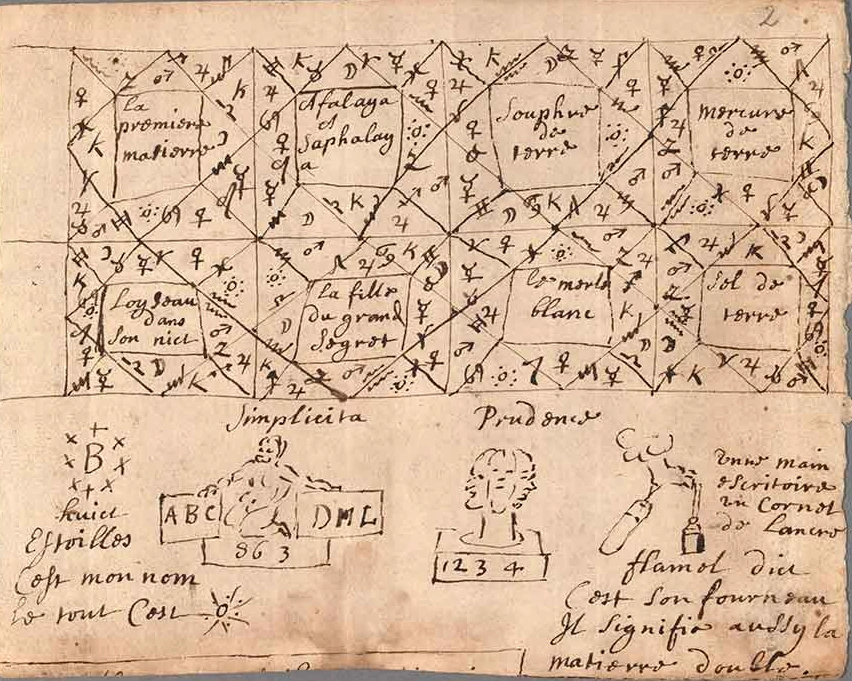 2
la
premiere
matierre
Afalaya
et
Saphalay
a
Souphre
de
terre
mercure
de
terre
Loyseau
dans
son nict
la fille
du grand
Segret
le merle
blanc
Sel de
terre
Simplicita
Prudence
B
huict
Estoilles
Cest mon nom
Le tout Cest
ABC DML
863
1234
main
escritoire
Cornet
de Lancre
flamel dict
Cest Son fourneau
Il Signifie aussy la
matierre double.